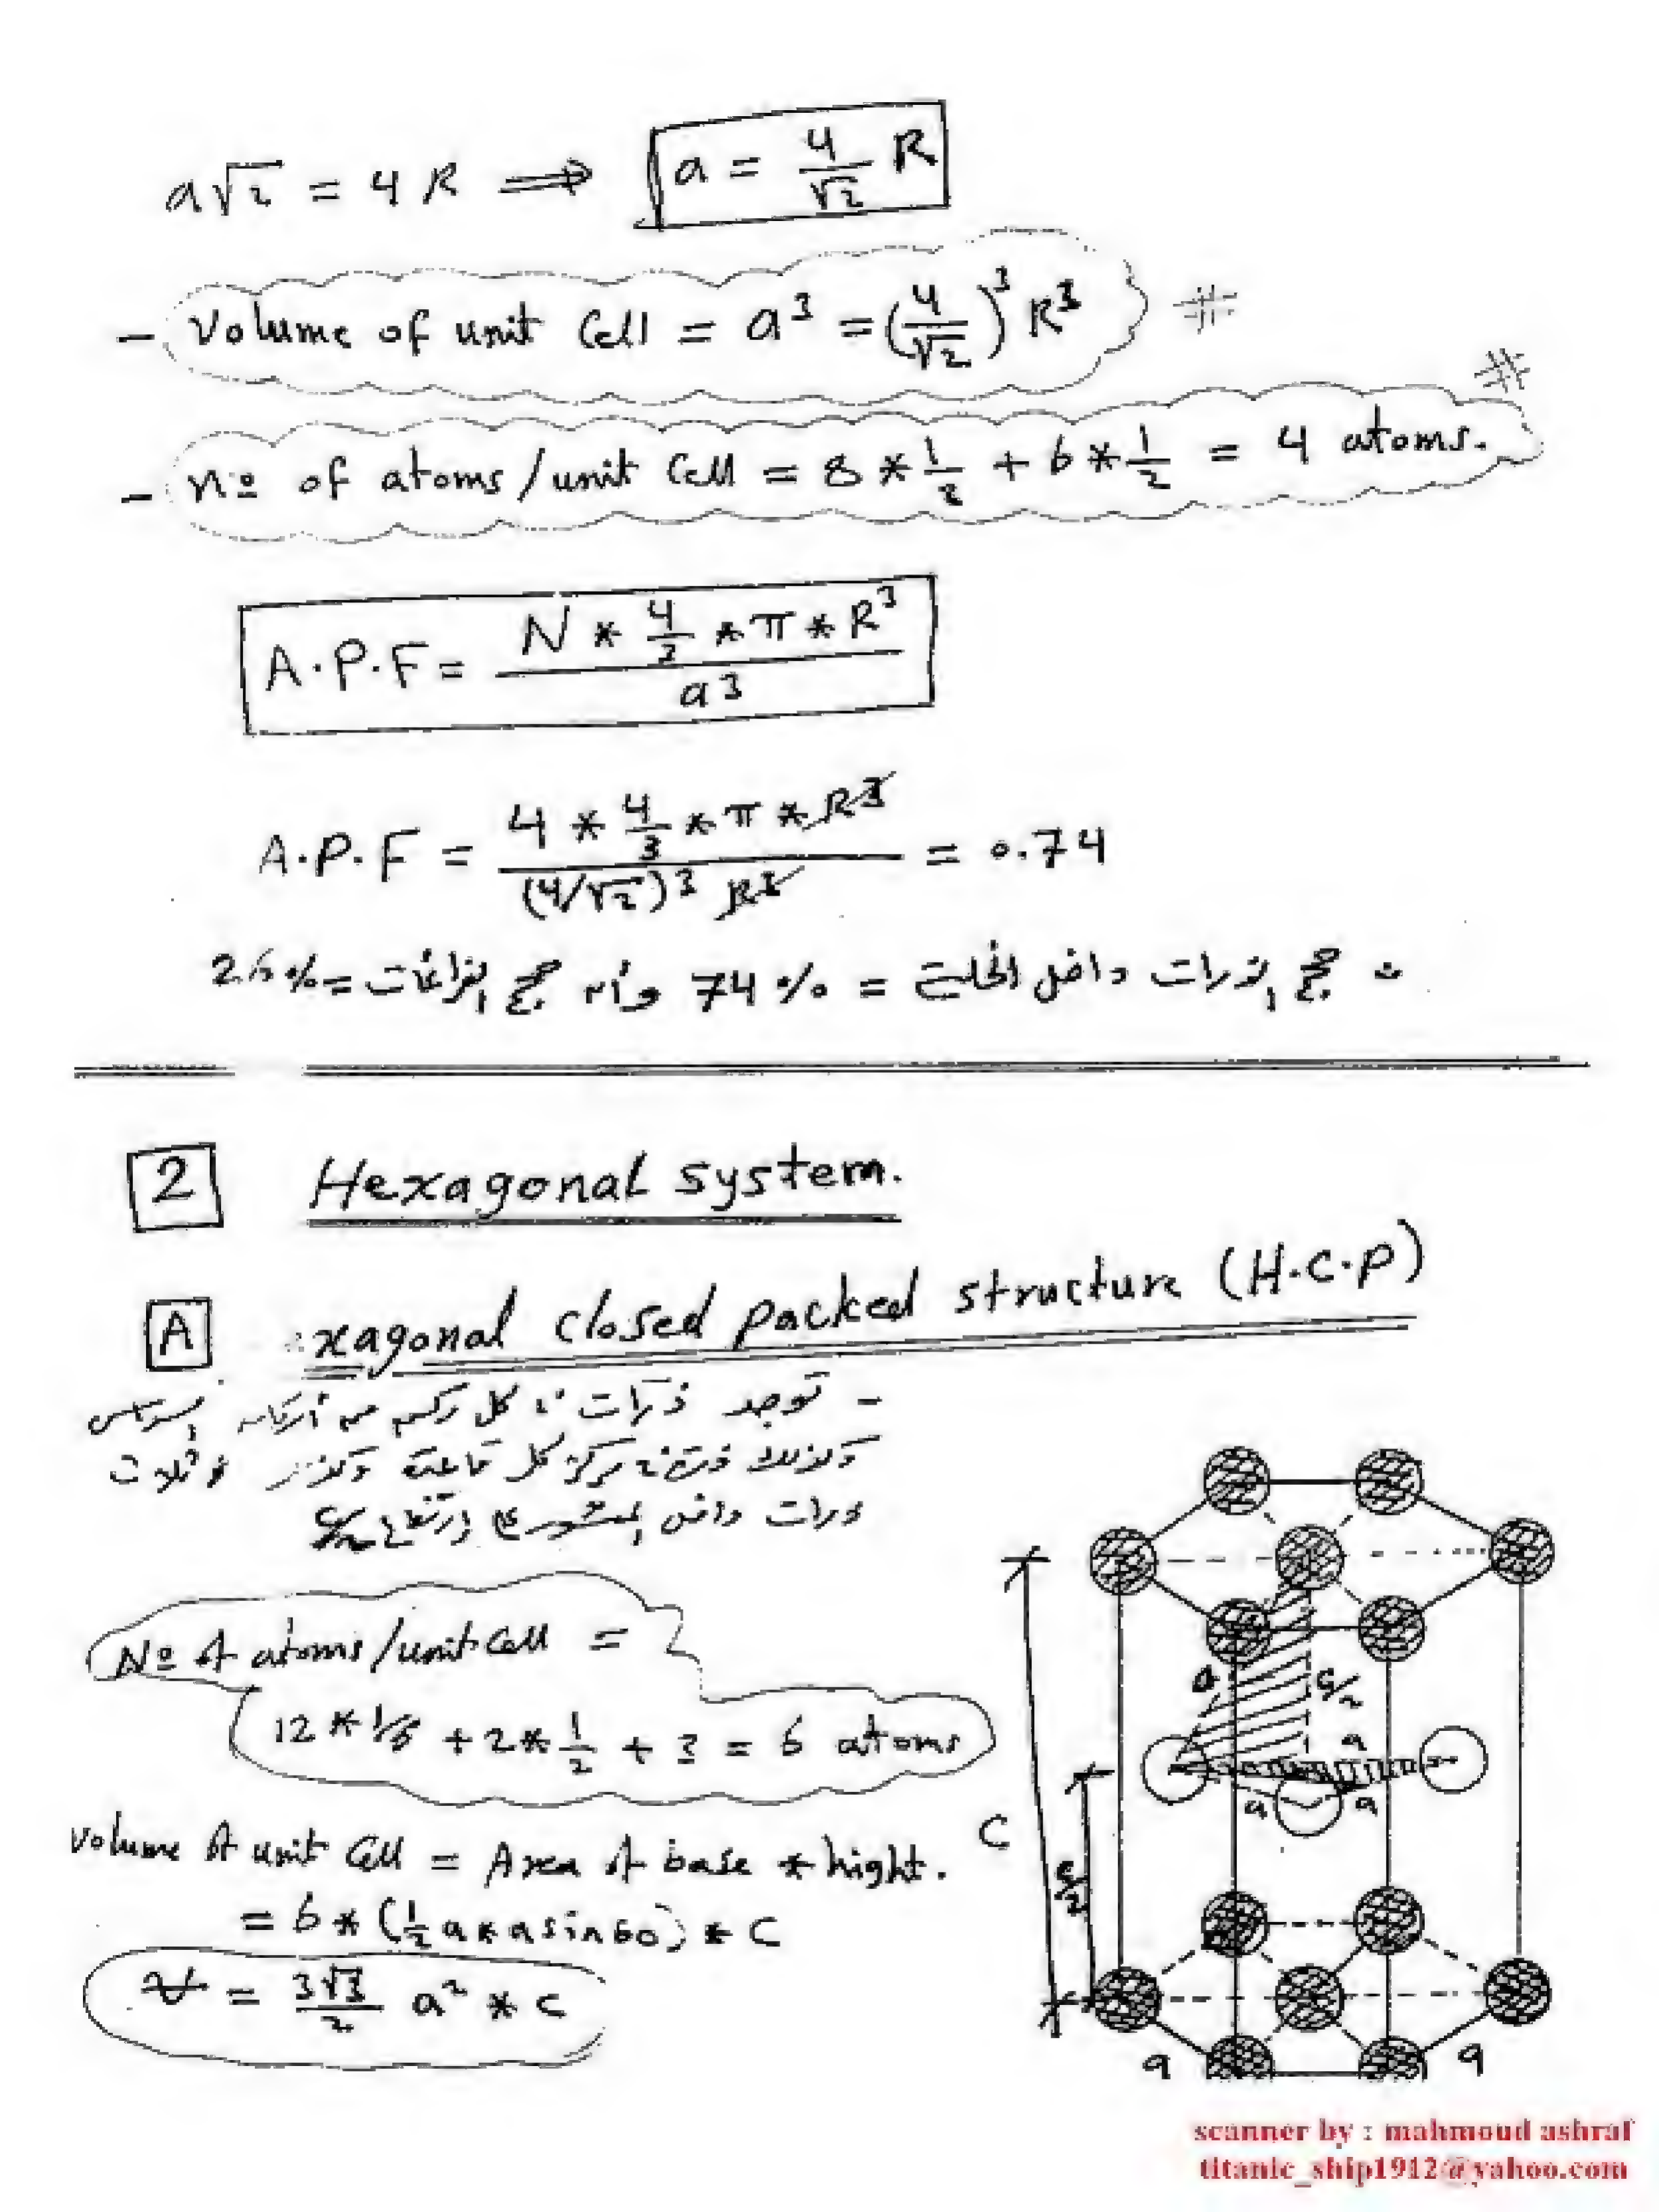 a√2 = 4 R ⟹ a = 4/√2 R
- Volume of unit Cell = a³ = (4/√2)³ R³ #
- nº of atoms/unit Cell = 8 * 1/2 + 6 * 1/2 = 4 atoms. #
A.P.F = N * 4/3 * π * R³ / a³
A.P.F = 4 * 4/3 * π * R³ / (4/√2)³ R³ = 0.74
∴ حجم الذرات داخل الخلية = 74 % وأن حجم الفراغات = 26 %
2 Hexagonal system.
A xagonal closed packed structure (H.C.P)
- توجد ذرات كل ركن من أركان
وكذلك مركز كل قاعدة ثلاث
ذرات داخل ارتفاع c/2
Nº of atoms/unit Cell =
12 * 1/6 + 2 * 1/2 + 3 = 6 atoms
Volume of unit Cell = Area of base * hight.
= 6 * (1/2 a * a sin 60) * C
V = 3√3/2 a² * c
a
c/2
a
a
a
C
c/2
a
a
scanner by : mahmoud ashraf
titanic_ship1912@yahoo.com